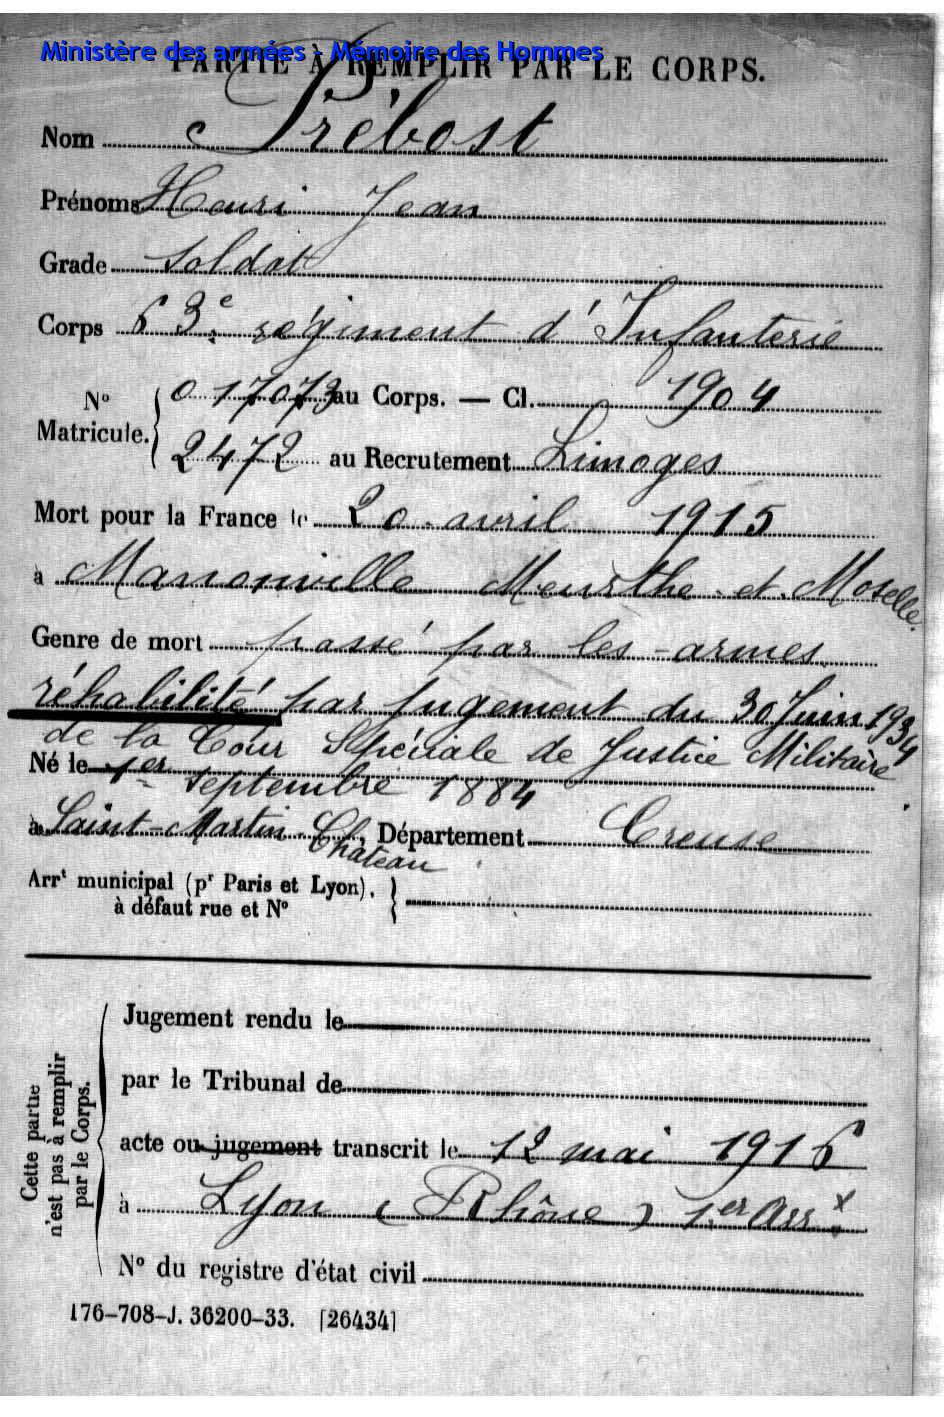 Ministère des armées - Mémoire des Hommes
PARTIE À REMPLIR PAR LE CORPS.
Nom Prébost
Prénoms Henri Jean
Grade Soldat
Corps 63e régiment d'Infanterie
No Matricule. 017073 au Corps. — Cl. 1904
2472 au Recrutement Limoges
Mort pour la France le 20 avril 1915
à Manonville Meurthe-et-Moselle.
Genre de mort passé par les armes,
réhabilité par jugement du 30 Juin 1934
de la Cour Spéciale de Justice Militaire
Né le 1er septembre 1884
à Saint-Martin-Château, Département Creuse
Arrt municipal (pr Paris et Lyon),
à défaut rue et No
Cette partie
n'est pas à remplir
par le Corps.
Jugement rendu le
par le Tribunal de
acte ou jugement transcrit le 12 mai 1916
à Lyon (Rhône) 1er Arrt
No du registre d'état civil
176-708-J. 36200-33. [26434]